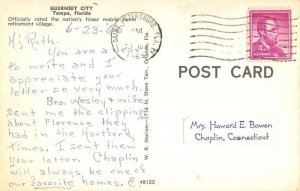 GUERNSEY CITY
Tampa, Florida
Officially rated the nation's finest mobile home
retirement village.
6-23-6
Hi Ruth,
You are a
to write and I
appreciate your
letter so very much.
Bro. Wesley & wife
sent me the clipping
about Florence, they
had in the Hartford
Times. I sent them
your letter. Chaplin
will always be one of
our favorite homes. E.
W. R. Marion
PM
POST CARD
Mrs. Howard E. Bowen
Chaplin, Connecticut
48122